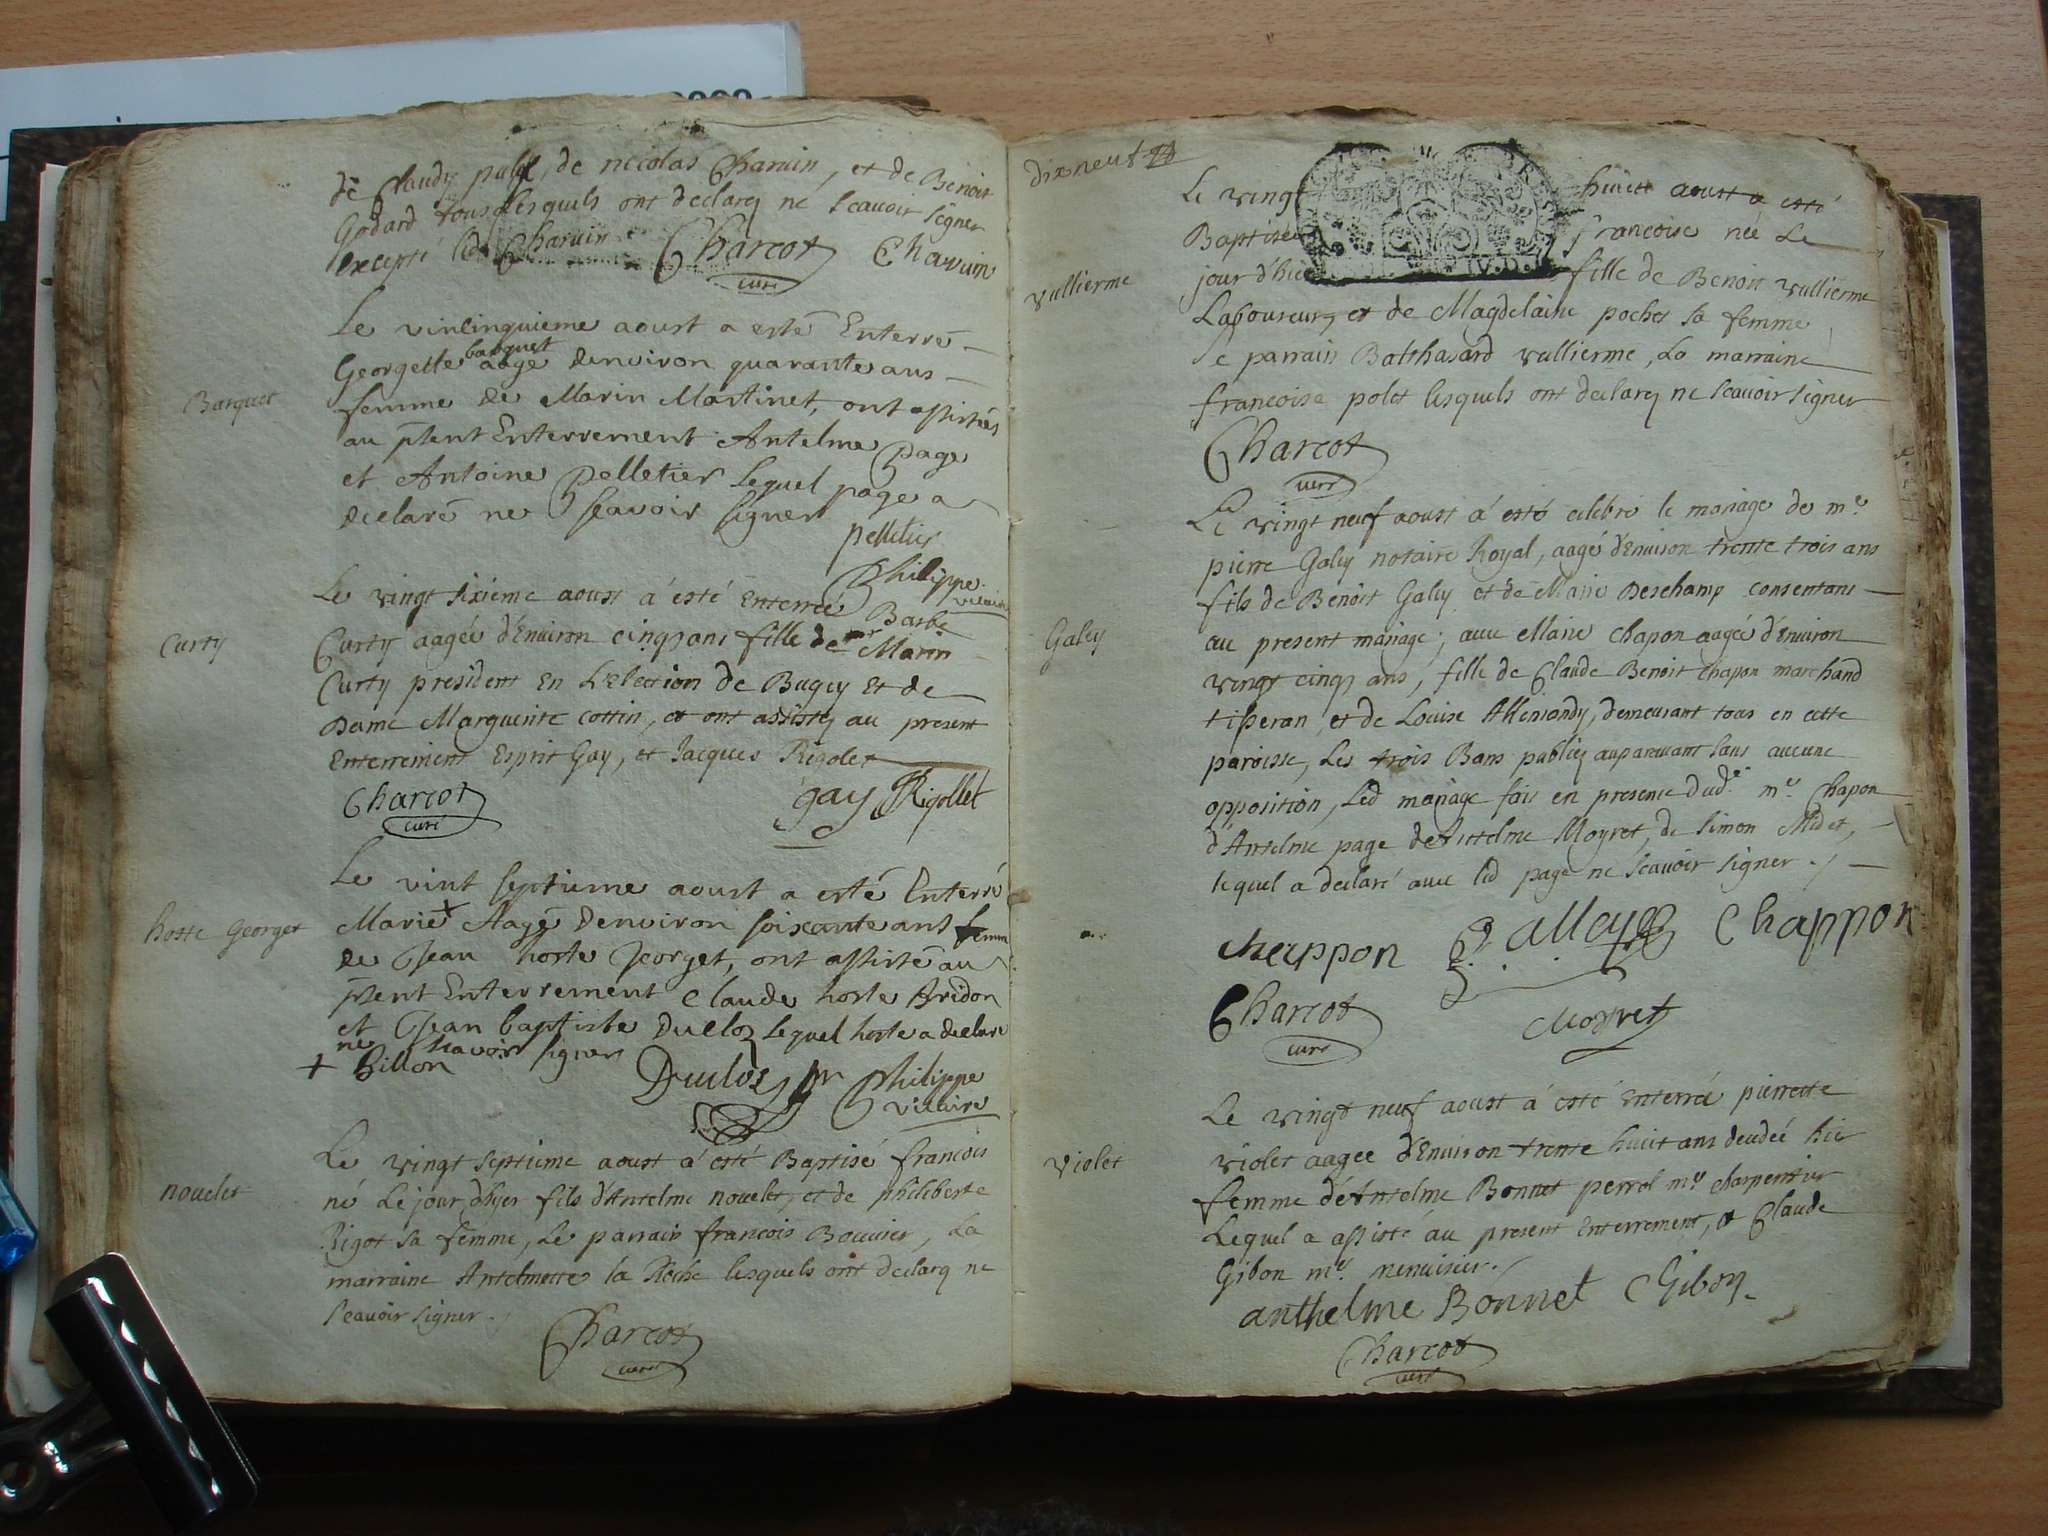 de Claudy pube, de nicolas Charuin, et de Benoit
Godard tous lesquels ont declarez ne scauoir signer
excepté led Charuin Charcot Charuin
curé
Le vincinquieme aoust a esté Enterré
Georgette barquet aagé denviron quarante ans
Barquet
femme de Marin Martinet, ont assistés
au pñt Enterrement Antelme page
et Antoine Pelletier Lequel page a
declaré ne scavoir signer
pelletier
Philippe vicaire
Le vingt sixiéme aoust á esté enterrée Barbe
Curty
Curty aagée d'Enuiron cinq ans fille de mr Marin
Curty president en L'election de Bugey et de
Dame Marguerite cottin, et ont assistez au present
enterrement Esprit Gay, et Jacques Rigolet
Charcot gay JRigollet
curé
Le vint septieme aoust a esté Enterré
hoste Georget
Marie + Aagé denviron soixante ans femme
de Jean hoste Georget, ont assisté au
pñt Enterrement Claude hoste Aridon
et Jean baptiste Ducloz Lequel hoste a declaré
ne scavoir signer
+ billon
Ducloz Philippe
vicaire
Le vingt septieme aoust á esté Baptisé francois
nouelet
né Le jour d'hyer fils d'Antelme nouelet, et de philiberte
Rigot sa femme, Le parrain francois Bouuier, La
marraine Antelmette la Roche lesquels ont declarez ne
scauoir signer.
Charcot
curé
dixneuf
Le vingt huiett aoust a esté
Baptisée francoise née Le
jour d'hier fille de Benoit vullierme
vullierme
Laboureur, et de Magdelaine pochet sa femme
Le parrain Balthasard vullierme, La marraine
francoise polet lesquels ont declarez ne scauoir signer
Charcot
curé
Le vingt neuf aoust á esté celebré le mariage de me
pierre Galey notaire Royal, aagé d'Enuiron trente trois ans
fils de Benoit Galey et de Marie Deschamp consentans
Galey
au present mariage; auec Marie chapon aagée d'Enuiron
vingt cinq ans, fille de Claude Benoit chapon marchand
tisseran, et de Louise Allemondy, demeurant tous en cette
paroisse, Les trois Bans publiez auparauant sans aucune
opposition, Led mariage fait en presence dud. me Chapon
d'Antelme page de Antelme Moyret, de Simon Midet,
lequel a declaré auec led page ne scauoir signer./.
chappon P. Galley Chappon
Charcot Moyret
curé
Le vingt neuf aoust á esté enterrée pierrette
Violet
violet aagée d'Enuiron trente huiet ans decedée hier
femme d'Antelme Bonnet perrol me charpentier
Lequel a assisté au present enterrement, et Claude
Gibon me menuisier.
anthelme Bonnet CGibon
Charcot
curé